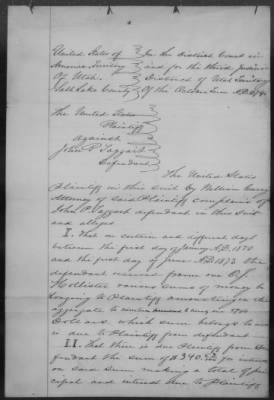 United States of In the District Court in
America Territory and for the third Judicial
Of Utah. District of Utah Territory
Salt Lake County Of the
The United States
Plaintiff
against
John P. Taggart
Defendant
The United States
Plaintiff in this suit by William Carey
Attorney of Said Plaintiff complains of
John P. Taggart defendant in this suit
and alleges
I. That on certain and different days
between the first day of A.D. 1870
and the first day of June A.D. 1873 the
defendant received from one O. J.
Hollister various sums of money be-
longing to Plaintiff amounting in the
aggregate to
Dollars which sum belongs to and
is due to Plaintiff from defendant
II. That there is due Plaintiff from De-
fendant the sum of $340. for interest
on said sum making a total of prin
cipal and interest due to Plaintiff